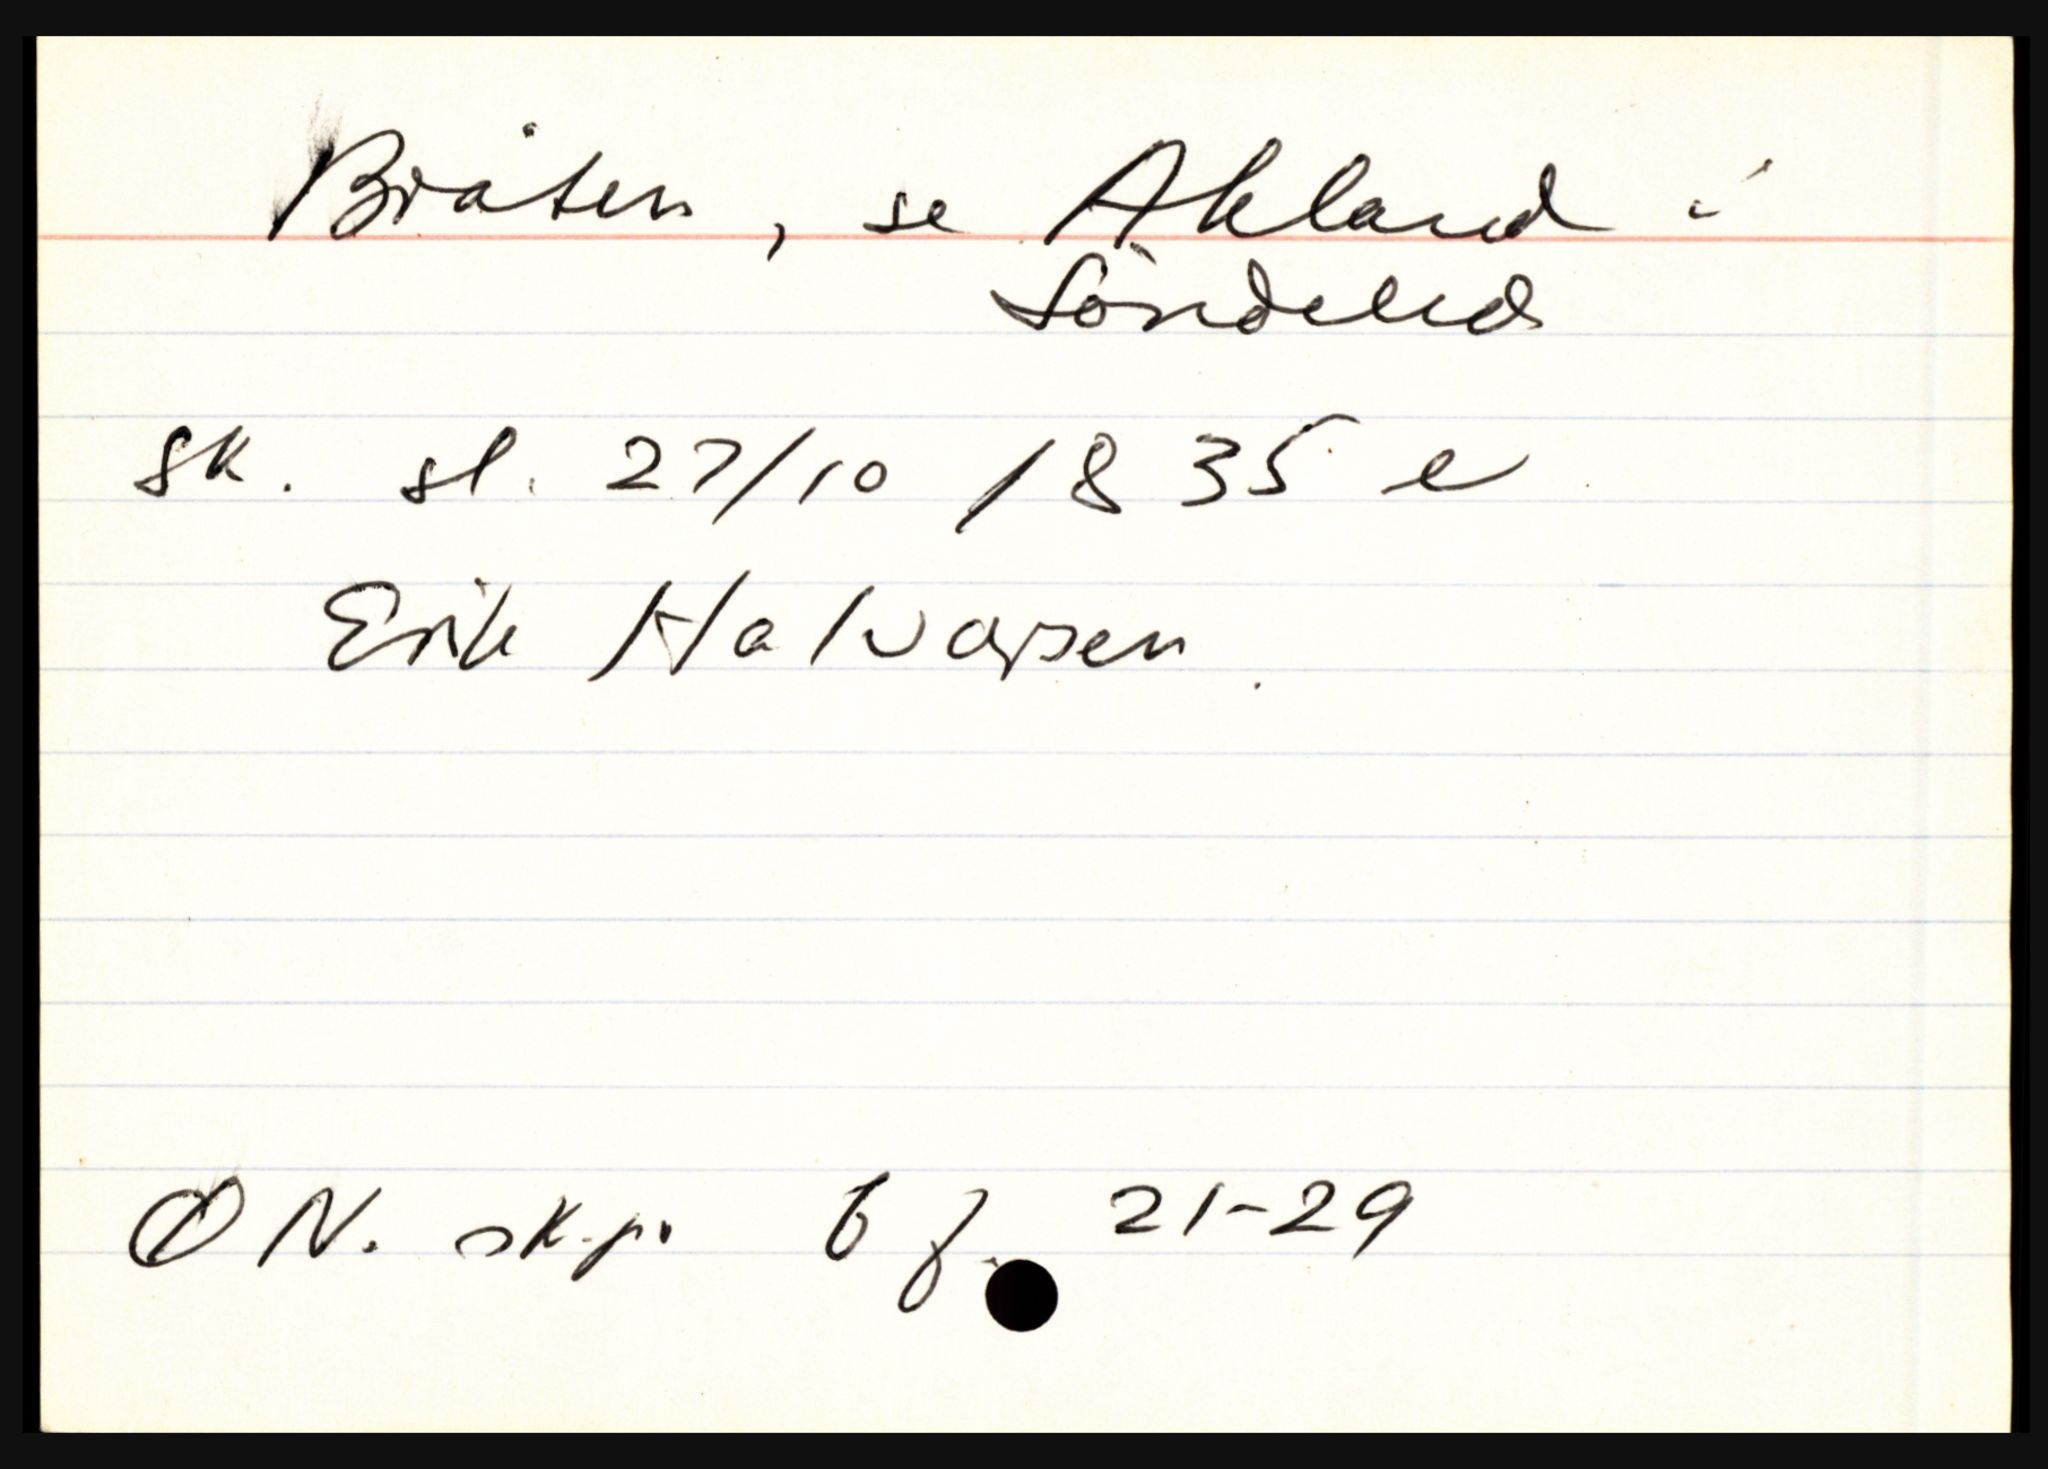 Bråten, se Akland i
Söndeled
sk. sl. 27/10 1835 e
Erik Halvorsen.
ØN. sk.pr. 6 f. 21-29